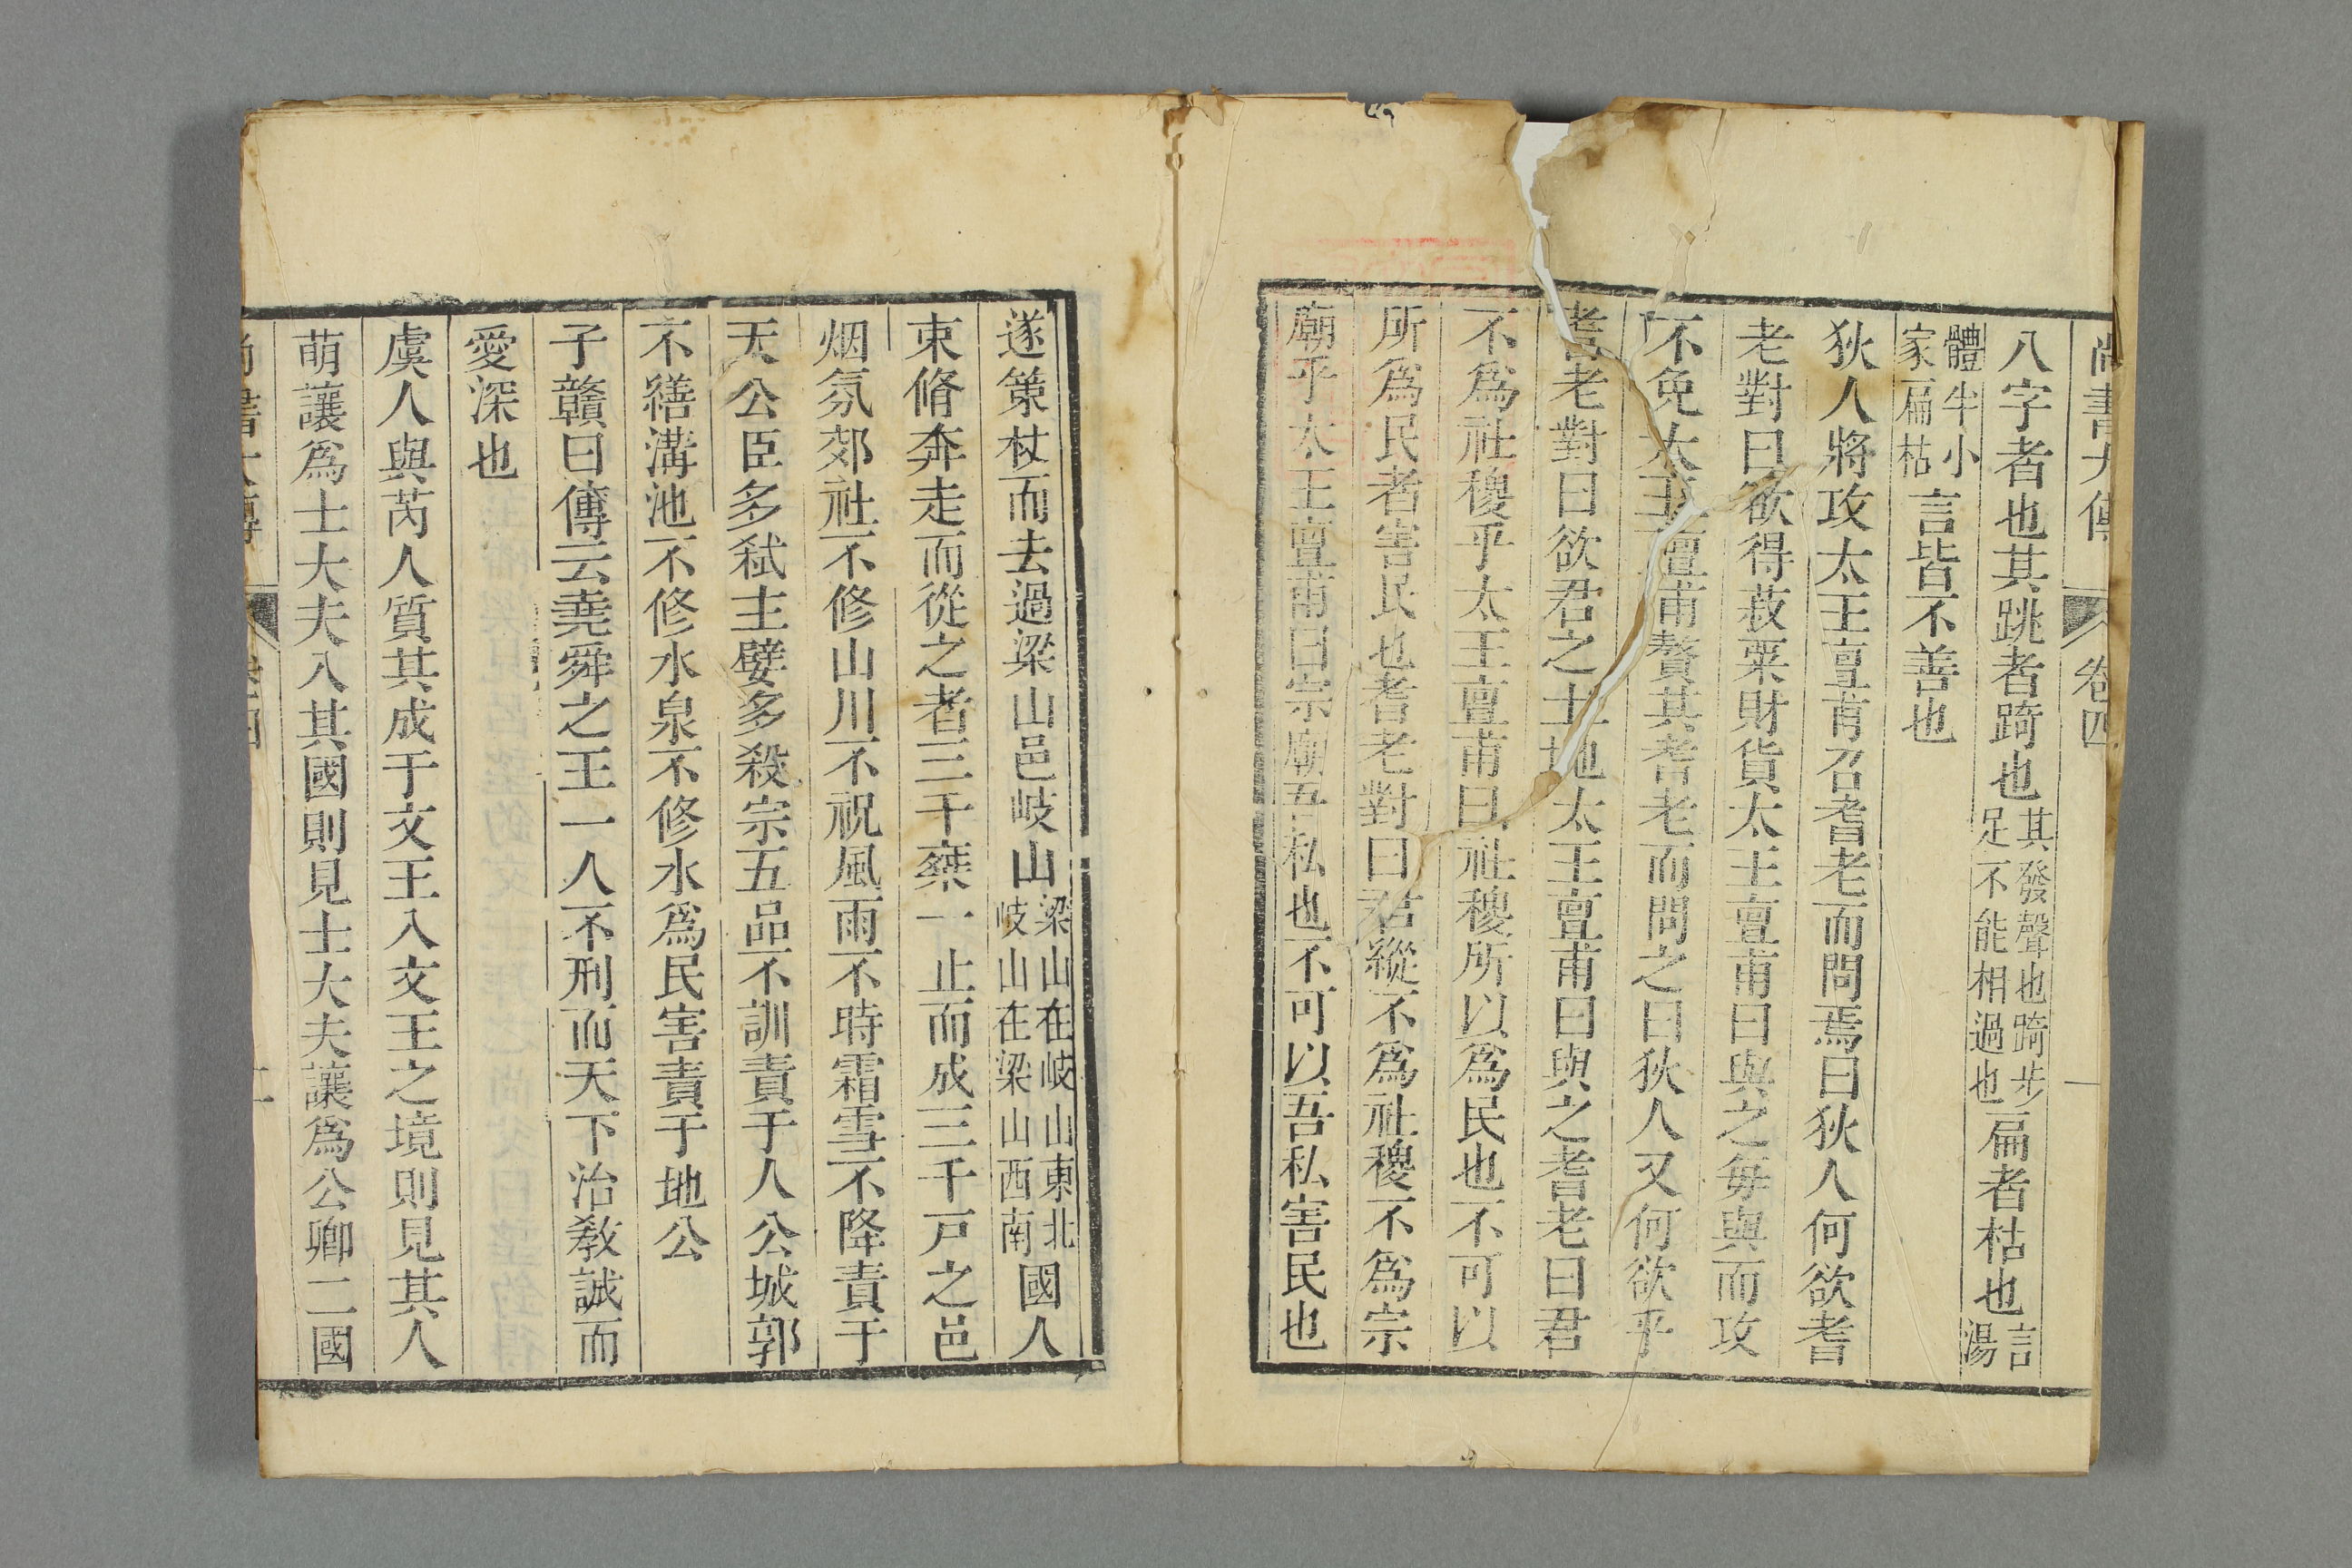 尚書大傳 卷四 一
八字者也其跳者踦也其發聲也踦步足不能相過也扁者枯也言湯
體半小家扁枯言皆不善也
狄人將攻太王亶甫召耆老而問焉曰狄人何欲耆
老對曰欲得菽粟財貨太王亶甫曰與之每與而攻
不免太王亶甫贅其耆老而問之曰狄人又何欲乎
耆老對曰欲君之土地太王亶甫曰與之耆老曰君
不為社稷乎太王亶甫曰社稷所以為民也不可以
所為民者害民也耆老對曰君縱不為社稷不為宗
廟乎太王亶甫曰宗廟吾私也不可以吾私害民也
遂策杖而去過梁山邑岐山梁山在岐山東北岐山在梁山西南國人
束脩奔走而從之者三千乘一止而成三千戶之邑
烟氛郊社不修山川不祝風雨不時霜雪不降責于
天公臣多弒主孽多殺宗五品不訓責于人公城郭
不繕溝池不修水泉不修水為民害責于地公
子贛曰傳云堯舜之王一人不刑而天下治教誠而
愛深也
虞人與芮人質其成于文王入文王之境則見其人
萌讓為士大夫入其國則見士大夫讓為公卿二國
尚書大傳 卷四 二